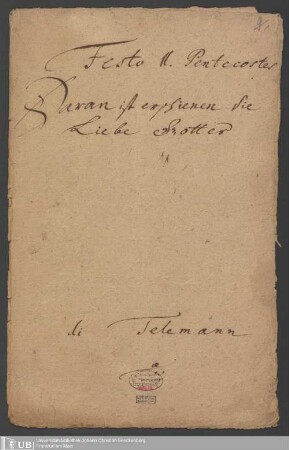 Festo II. Pentecostes
Daran ist erschienen die
Liebe Gottes
di Telemann
UB
Universitätsbibliothek Johann Christian Senckenberg
Frankfurt am Main